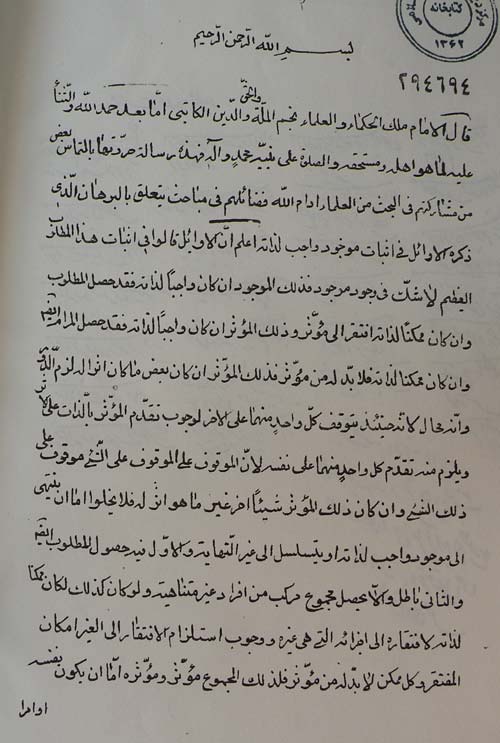 بسم الله الرحمن الرحیم
کتابخانه
۱۳۶۲
۲۹۴۶۹۴
قال الامام ملک الحکماء والعلماء نجم الملّة والحق والدین الکاتبی امّا بعد حمد الله والثناء
علیه لما هو اهله ومستحقه والصلوة علی نبیه محمد وآله فهذه رسالة حررتها بالتماس بعض
من مشارکیهم فی البحث من العلماء ادام الله فضائلهم فی مباحث یتعلق بالبرهان الذی
ذکره الاوائل فی اثبات موجود واجب لذاته اعلم انّ الاوائل قالوا فی اثبات هذا المطلوب
العظیم لا شک فی وجود موجود فذلک الموجود ان کان واجباً لذاته فقد حصل المطلوب
وان کان ممکناً لذاته افتقر الی مؤثر وذلک المؤثر ان کان واجباً لذاته فقد حصل المرام ایضا
وان کان ممکنا لذاته فلا بدّ له من مؤثر فذلک المؤثر ان کان بعض ما کان اثرا له لزم الدور
وانه محال لانه حینئذ یتوقف کل واحد منهما علی الاخر لوجوب تقدّم المؤثر بالذات علی الاثر
ویلزم منه تقدّم کل واحد منهما علی نفسه لانّ الموقوف علی الموقوف علی الشیء موقوف علی
ذلک الشیء وان کان ذلک المؤثر شیئاً اخر غیر ما هو اثر له فلا یخلوا اما ان ینتهی
الی موجود واجب لذاته او یتسلسل الی غیر النهایة والاوّل فیه حصول المطلوب ایضا
والثانی باطل والا یحصل مجموع مرکب من افراد غیر متناهیة ولو کان کذلک لکان ممکنا
لذاته لافتقاره الی افراده التی هی غیره ووجوب استلزام الافتقار الی الغیر امکان
المفتقر وکل ممکن لا بدّ له من مؤثر فلذلک المجموع مؤثر ومؤثره امّا ان یکون نفسه
او امرا